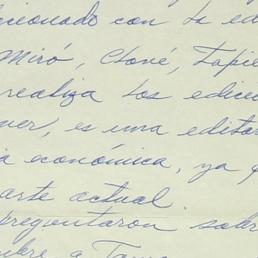 cionado con la ed
Miró, Clavé, Tapie
realiza los edicio
ner, es una editor
ia económica, ya q
arte actual.
preguntaron sobr
a